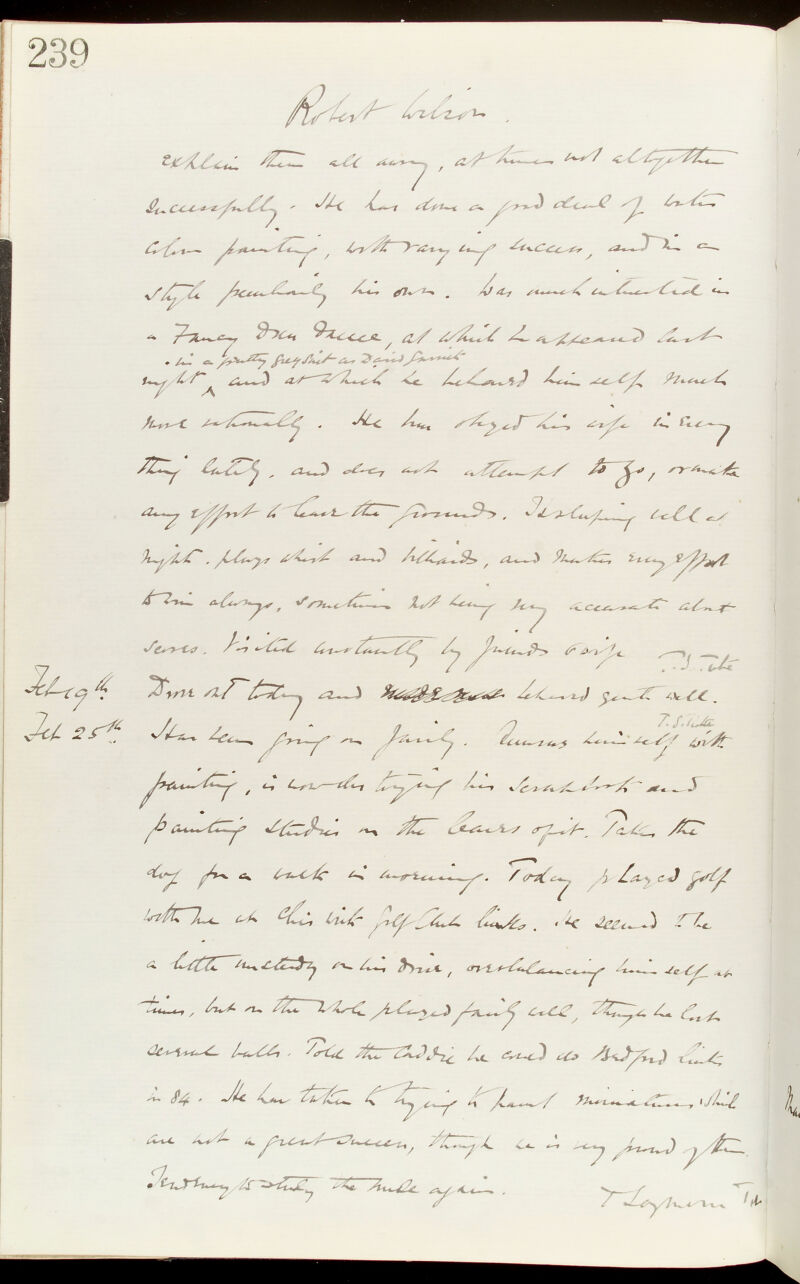 239
Robert Wilson.
explain them all away, at times not altogether
successfully. He has done a good deal of water
colour painting, with varying success, and in a
style peculiarly his own. Was much interested in
a Fancy Dress Dance, at which he appeared last
. in a pretty grey suit as David Garrick
night ^ and at which he behaved himself much
more rationally. He has obeyed his wife in every
thing lately. and does not attempt to go, or make
any effort to leave the grounds. Is sleeping well at
night. plays whist and billiards, and makes every effort
to win always, sometimes not being very accurate about
scores. Visited constantly by friends & wife
Feb 19th. Drove out today and behaved quite well.
Feb 25th. Has been going on fairly. Amuses himself with
painting, is now destroying his scrapbook and
painting studies on the leaves of it. Takes the
dog for a walk in morning. Today played golf
with me at Chiswick Golf Club links. He seemed to be
a little unsteady on his drive, overbalancing himself at
times, but on the whole played fairly well, though he lost
several balls. Told the Caddie he could do Bedford links
in 84. He has taken to trying to paint miniatures which
are not a great success, though he is very proud of them.
Tendency to study the nude again.
T Seymour T